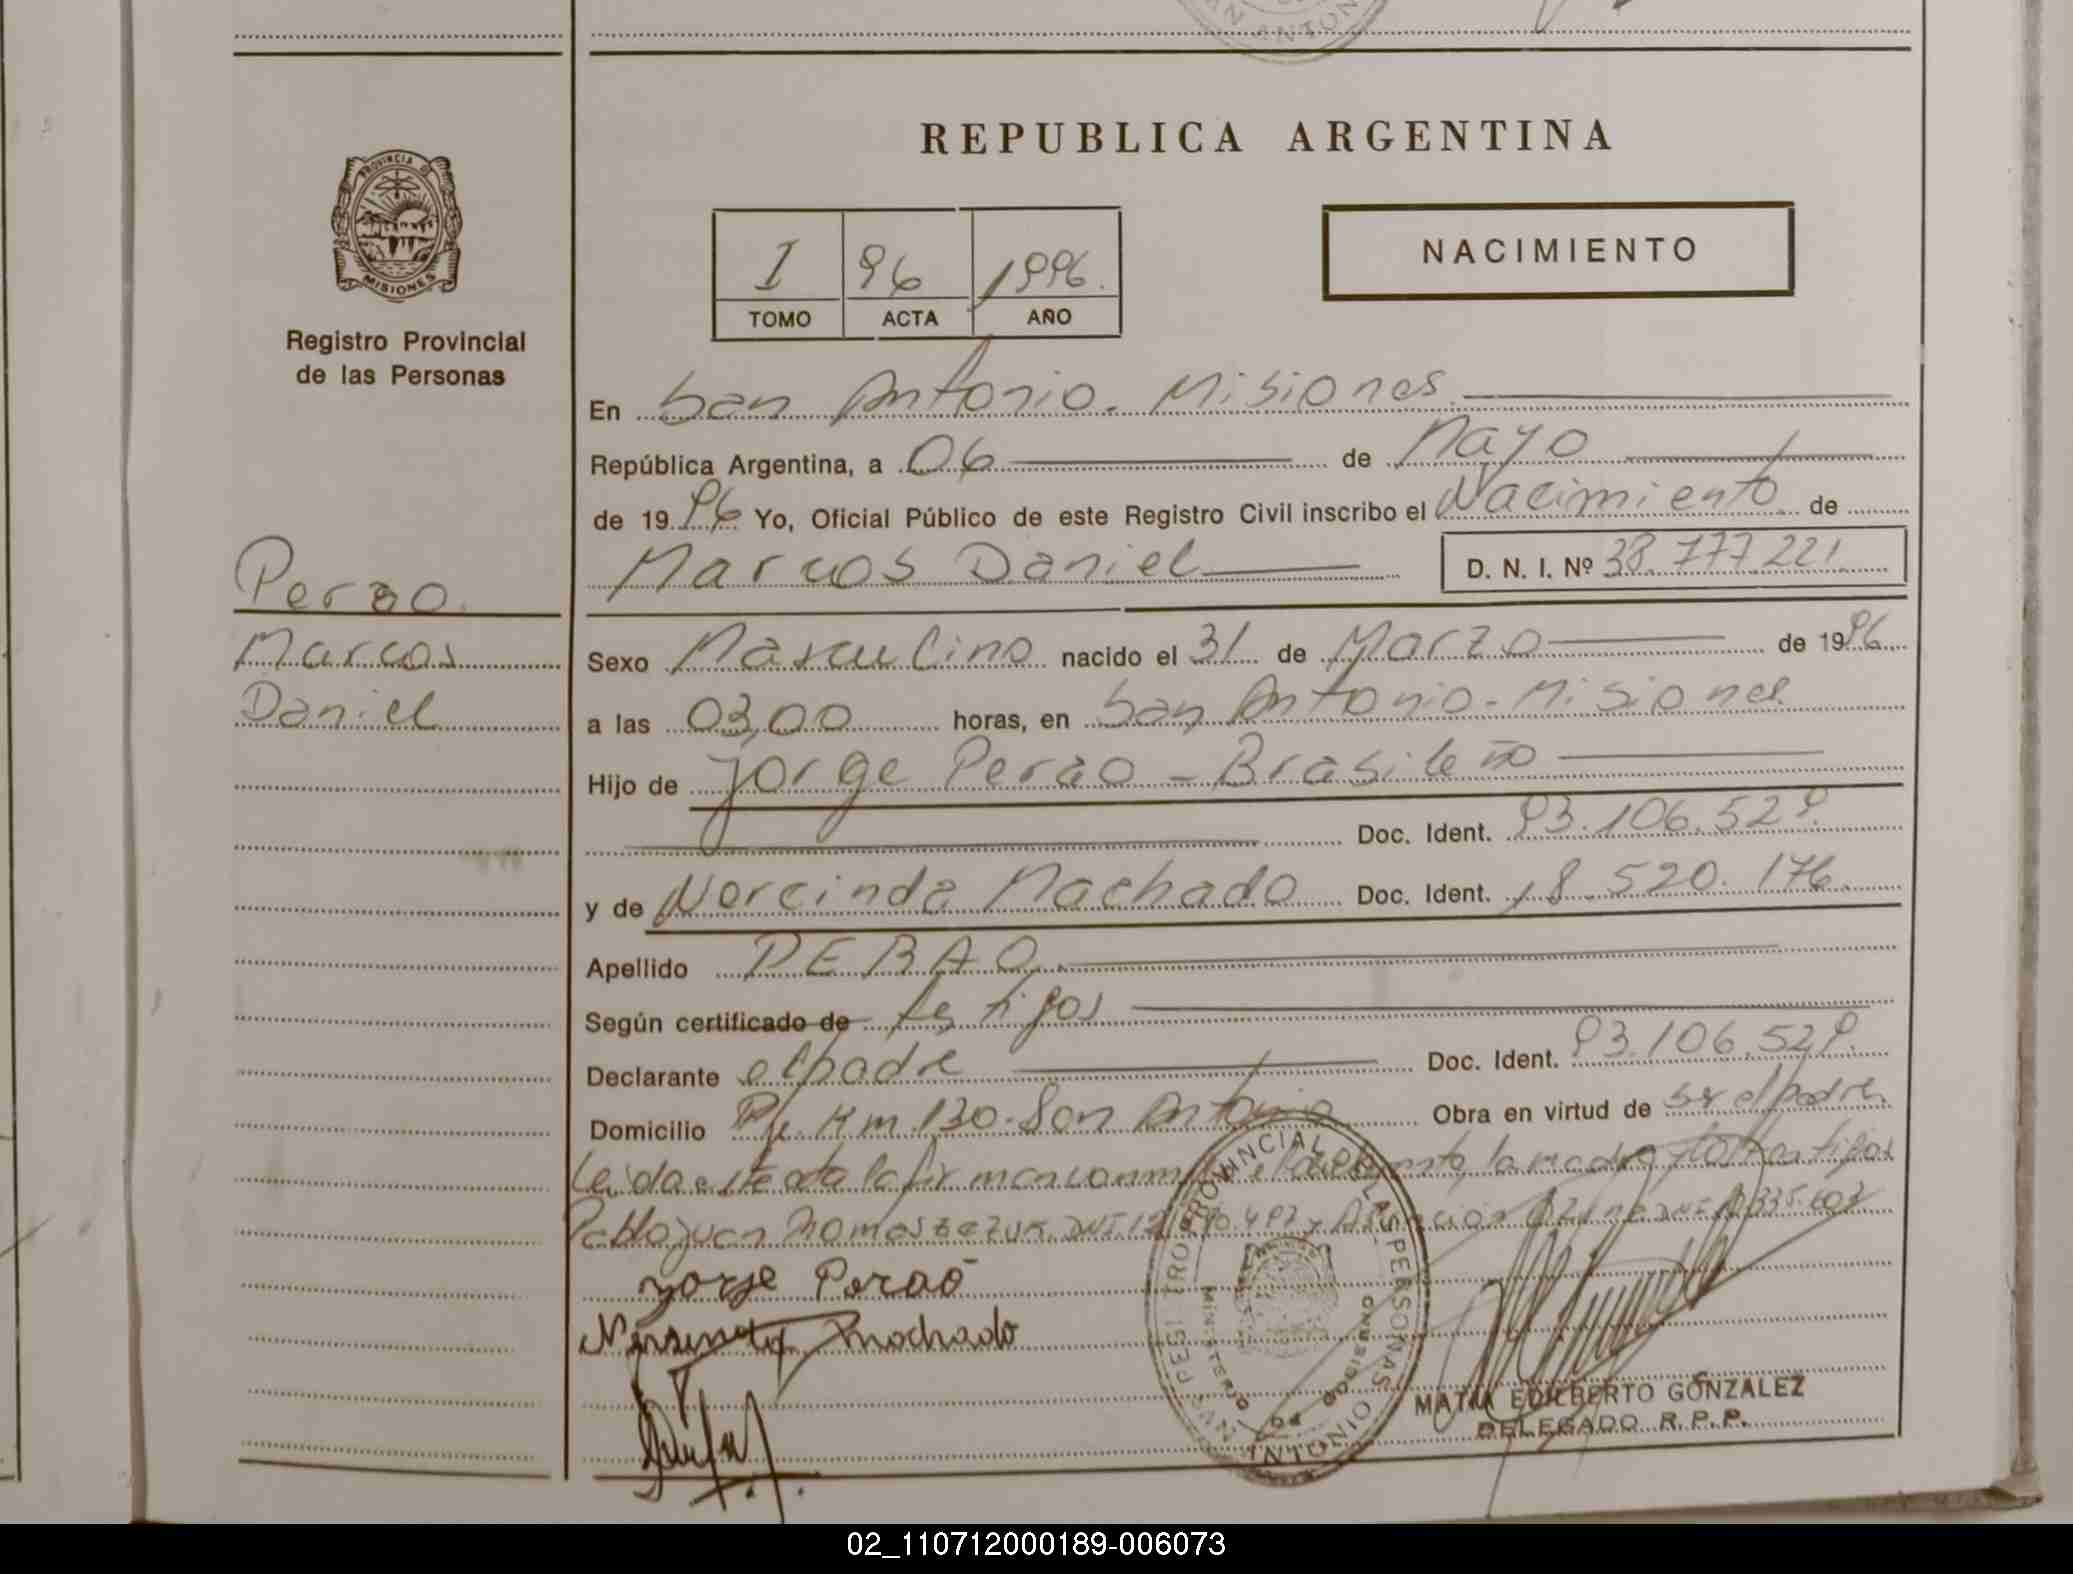 REPUBLICA ARGENTINA
PROVINCIA DE
MISIONES
Registro Provincial
de las Personas
NACIMIENTO
I 96 1996.
TOMO ACTA AÑO
En San Antonio. Misiones
República Argentina, a 06 de Mayo
de 1996 Yo, Oficial Público de este Registro Civil inscribo el Nacimiento de
Marcos Daniel D. N. I. Nº 38.777.221
Perao.
Marcos
Daniel
Sexo Masculino nacido el 31 de Marzo de 1996
a las 03,00 horas, en San Antonio - Misiones
Hijo de Jorge Perao - Brasileño
Doc. Ident. 93.106.529.
y de Norcinda Machado Doc. Ident. 18.520.176.
Apellido PERAO.
Según certificado de testigos
Declarante el padre Doc. Ident. 93.106.529.
Domicilio Km. 130. San Antonio Obra en virtud de ser el padre.
Leida este acta la firman conmigo la madre testigos
Pablo Juan DNI
Jorge Peraō
Machado
REGISTRO PROVINCIAL DE LAS PERSONAS
MINISTERIO DE GOBIERNO
SAN ANTONIO
EDILBERTO GONZALEZ
DELEGADO R.P.P.
02_110712000189-006073